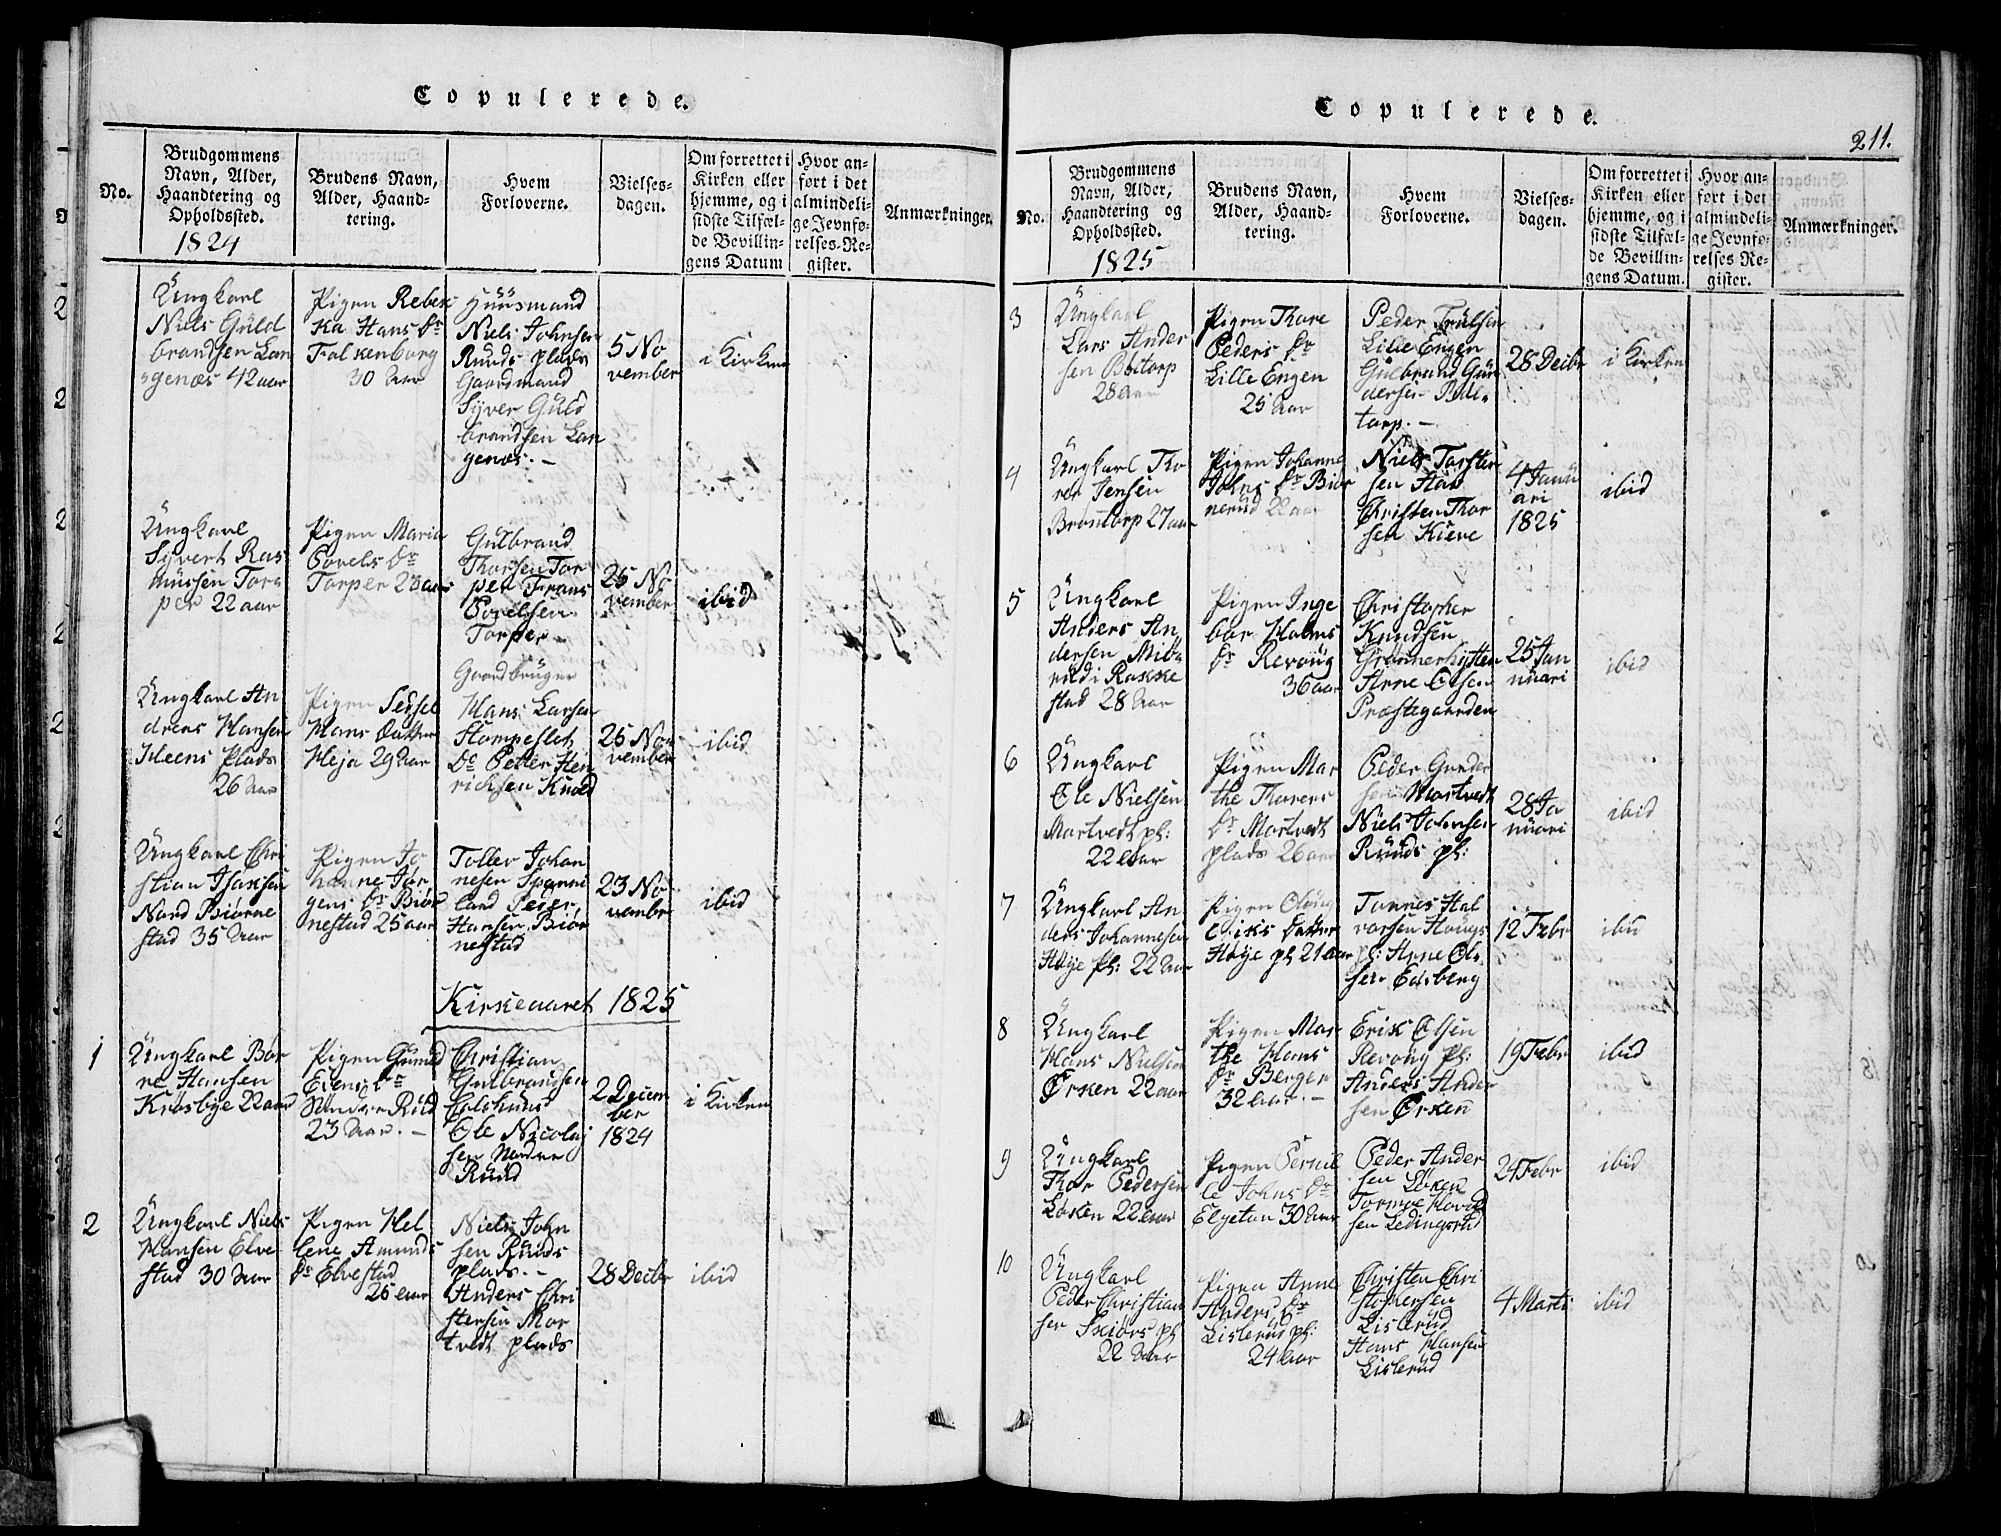 Copulerede.
No.
Brudgommens
Navn, Alder,
Haandtering og
Opholdssted.
1824
Brudens Navn,
Alder, Haand-
tering.
Hvem
Forloverne.
Vielses-
dagen.
Om forrettet i
Kirken eller
hjemme, og i
sidste Tilfæl-
de Bevillin-
gens Datum
Hvor an-
ført i det
almindeli-
ge Jevnfø-
relses-Re-
gister.
Anmærkninger.
Ungkarl
Niels Guld
brandsen Lan
genæs 42 aar
Pigen Rebek
ka Hans Dr
Falkenborg
30 Aar
Huusmand
Niels Johnsen
Ruuds plads
Gaardmand
Syver Guld
brandsen Lan
genæs. -
5 No
vember
i Kirken
Ungkarl
Syvert Ras
mussen Tor
per 22 aar
Pigen Maria
Povels Dr
Torper 23 aar
Gulbrand
Thorsen Tor
per Frans
Povelsen
Torper -
25 No
vember
ibid
Ungkarl An
dreas Hansen
Heens Plads
26 Aar
Pigen Sidsel
Hans Datter
Heja 29 Aar
Gaardbruger
Hans Larsen
Stompeslet
Do Petter Hen
richsen Knold
26 No
vember
ibid
Ungkarl Chri
stian Isaksen
Nord Biørne
stad 35 Aar
Pigen Jo
hanne Jør
gens Dr Biør
nestad 25 aar
Tollev Johan
nesen Spanne
land Peder
Hansen Biør
nestad
23 No
vembr
ibid
Kirkeaaret 1825
1
Ungkarl Bør
re Hansen
Krosbye 22 aar
Pigen Gunild
Evens Dr
Nordre Rud
23 Aar. -
Christian
Gulbrandsen
Eidshuus
Ole Nicolaj
sen Nordre
Ruud
2 Decem
ber
1824
i Kirken
2
Ungkarl Niels
Hansen Elve
stad 30 Aar
Pigen Hel
lene Amunds
Dr Elvestad
26 aar
Niels John
sen Ruuds
plads. -
Anders Chri
stersen Mor
tvedt plads
28 Decbr
ibid
Copulerede.
211.
No.
Brudgommens
Navn, Alder,
Haandtering og
Opholdssted.
1825
Brudens Navn,
Alder, Haand-
tering.
Hvem
Forloverne.
Vielses-
dagen.
Om forrettet i
Kirken eller
hjemme, og i
sidste Tilfæl-
de Bevillin-
gens Datum.
Hvor an-
ført i det
almindeli-
ge Jevnfø-
relses Re-
gister.
Anmærkninger.
3
Ungkarl
Lars Ander
sen
28 aar
Pigen Thore
Peders Dr
Lille Engen
25 Aar
Peder Trulsen
Lille Engen
Gulbrand Gun
dersen
torp. -
28 Decbr
i Kirken
4
Ungkarl Tho
rer Jensen
Brøntorp 27 aar
Pigen Johanne
Johns Dr Biør
nerud 22 aar
Niels Torster
sen Haae
Christen Thor
sen Kieve
4 Janu
ari
1825
ibid
5
Ungkarl
Anders An
dersen Miø
rud i Rakke
stad 28 Aar
Pigen Inge
bor Holms
Dr Revoug
36 aar
Christopher
Knudsen
Grønnerhytten
Arne Olsen
Præstegaarden
25 Jan
nuari
ibid
6
Ungkarl
Ole Nielsen
Mortvedt pl:
22 Aar
Pigen Mar
the Thorers
Dr Mortvedt
plads 26 aar
Peder Gunder
sen Mortvedt
Niels Johnsen
Ruuds pl:
28 Ja
nuari
ibid
7
Ungkarl An
ders Johannesen
Høye pl: 22 Aar
Pigen Oloug
Eriks Datter
Høye pl 21 aar
Tønnes Hal
vorsen Hougs
pl: Arne Ol
sen Eidsberg
12 Febr
ibid
8
Ungkarl
Hans Nielsen
Ørken 22 aar
Pigen Mar
the Hans
Dr Berger
32 Aar. -
Erik Olsen
Revoug pl:
Anders Ander
sen Ørken
19 Febr
ibid
9
Ungkarl
Thor Pedersen
Løken 22 aar
Pigen Pernil
le Johns Dr
Elgetun 30 Aar
Peder Ander
sen Løken
Tormoe Hovel
sen Ledingsrud
24 Febr
ibid
10
Ungkarl
Peder Christian
sen Skiørs pl
22 Aar
Pigen Anne
Anders Dr
Lislerud pl:
24 Aar
Christen Chri
stophersen
Lislerud
Hans Hansen
Lislerud
4 Marti
ibid